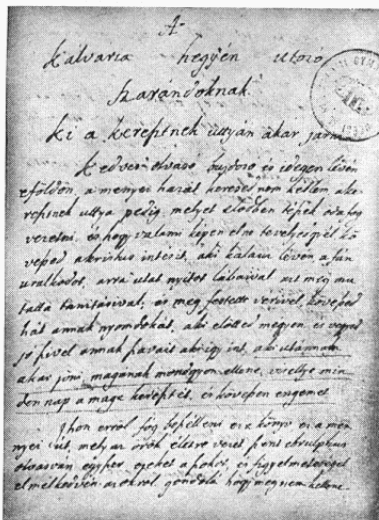 A
Kálvaria hegyén utozó
Szarándoknak.
Ki a kereptnek uttyan akar járni
Kedves olvasó bujdosó és idegen lévén
eföldön, a menyei hazát keresed nem kétlem, a ke
reptnek uttya pedig, melyet elődben tépek oda fog
vezetni, és hogy valami képen el ne tévelyegjél kö
vesed a kristus intésit, aki kalauz lévén a fán
uralkodot, arra utat nyitot lábaival ait meg mu
tatta tanitásival, és meg festette vérivel, kövesed
hát annak nyomdokát, aki előtted megyen, és vegyed
jo szivel annak szavait aki igy int, aki utánnam
akar jöni, magának mondgyon ellene, viselye min
den nap a maga kereptét, és kövesen engemet
Ihon erröl fog beszélleni ez a könyv ez a men
nyei út, mely az örök életre vezet szent
olvasván egyszer, ezeket a és figyelmeteséggel
el mélkedvén azokrol, gondold hogy meg nem